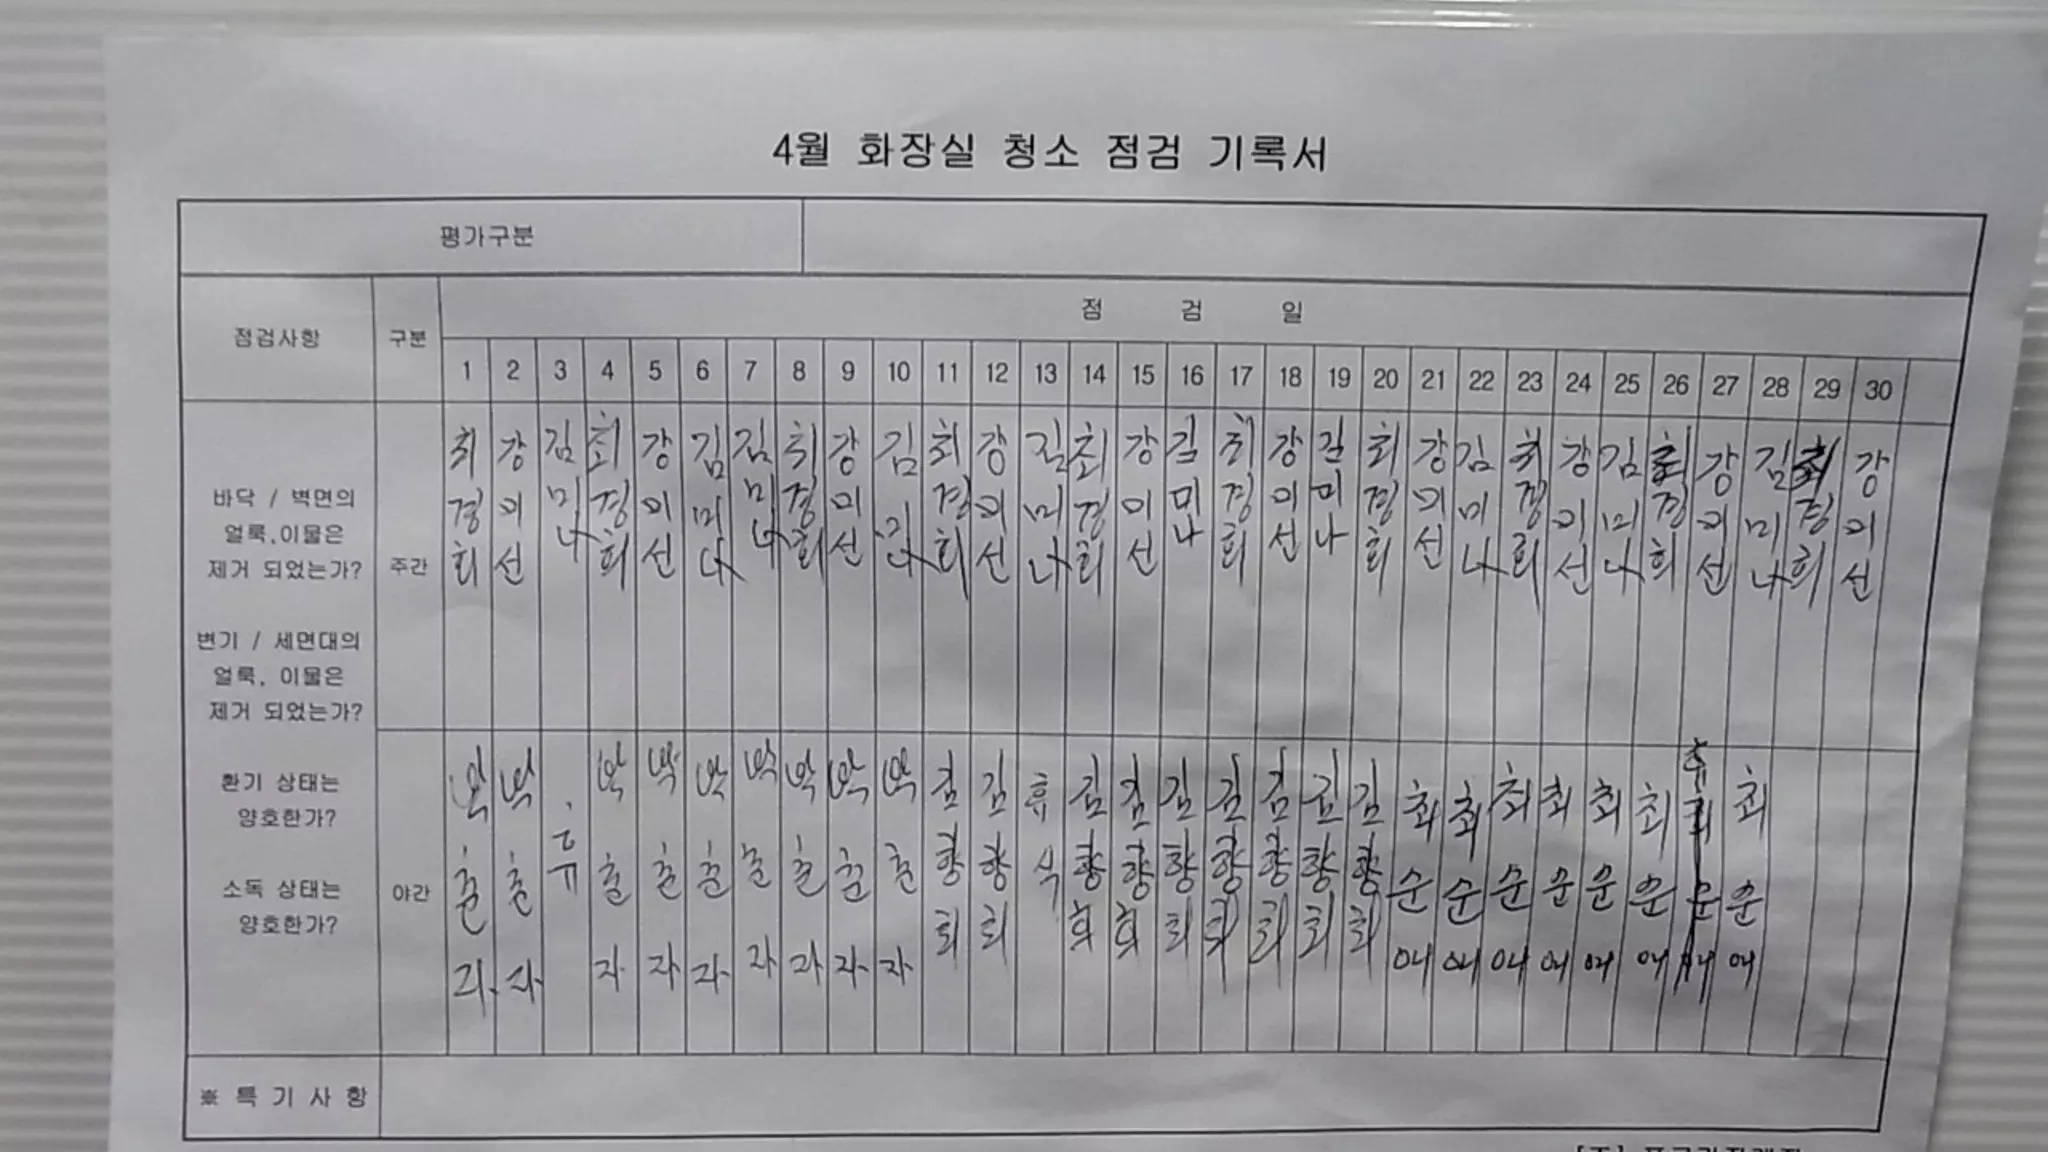 4월 화장실 청소 점검 기록서
평가구분
점검사항 구분 점 검 일
1 2 3 4 5 6 7 8 9 10 11 12 13 14 15 16 17 18 19 20 21 22 23 24 25 26 27 28 29 30
바닥 / 벽면의
얼룩,이물은
제거 되었는가?
변기 / 세면대의
얼룩, 이물은
제거 되었는가?
환기 상태는
양호한가?
소독 상태는
양호한가?
주간
최경희 강미선 김미나 최경희 강미선 김미나 김미나 최경희 강미선 김미나 최경희 강미선 김미나 최경희 강미선 김미나 최경희 강미선 김미나 최경희 강미선 김미나 최경희 강미선 김미나 최경희 강미선 김미나 최경희 강미선
야간
박춘자 박춘자 휴 박춘자 박춘자 박춘자 박춘자 박춘자 박춘자 박춘자 김향희 김향희 휴식 김향희 김향희 김향희 김향희 김향희 김향희 김향희 최순애 최순애 최순애 최순애 최순애 최순애 휴 최순애
※ 특 기 사 항